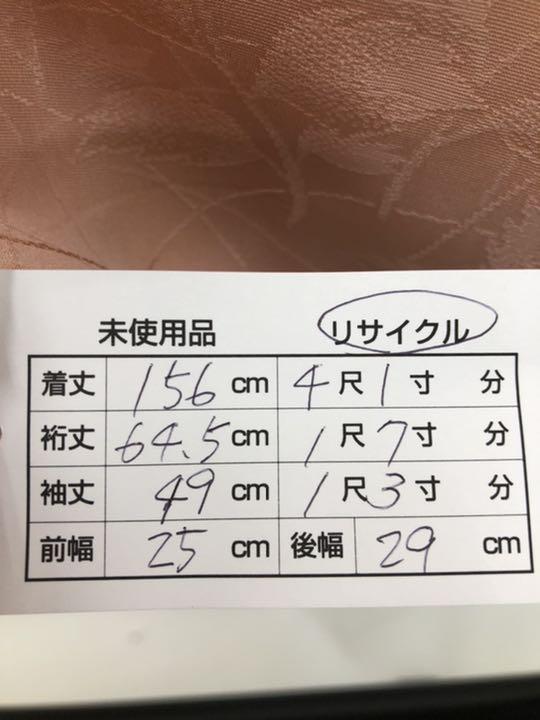 未使用品 リサイクル
着丈 156 cm 4 尺 1 寸 分
裄丈 64.5 cm 1 尺 7 寸 分
袖丈 49 cm 1 尺 3 寸 分
前幅 25 cm 後幅 29 cm